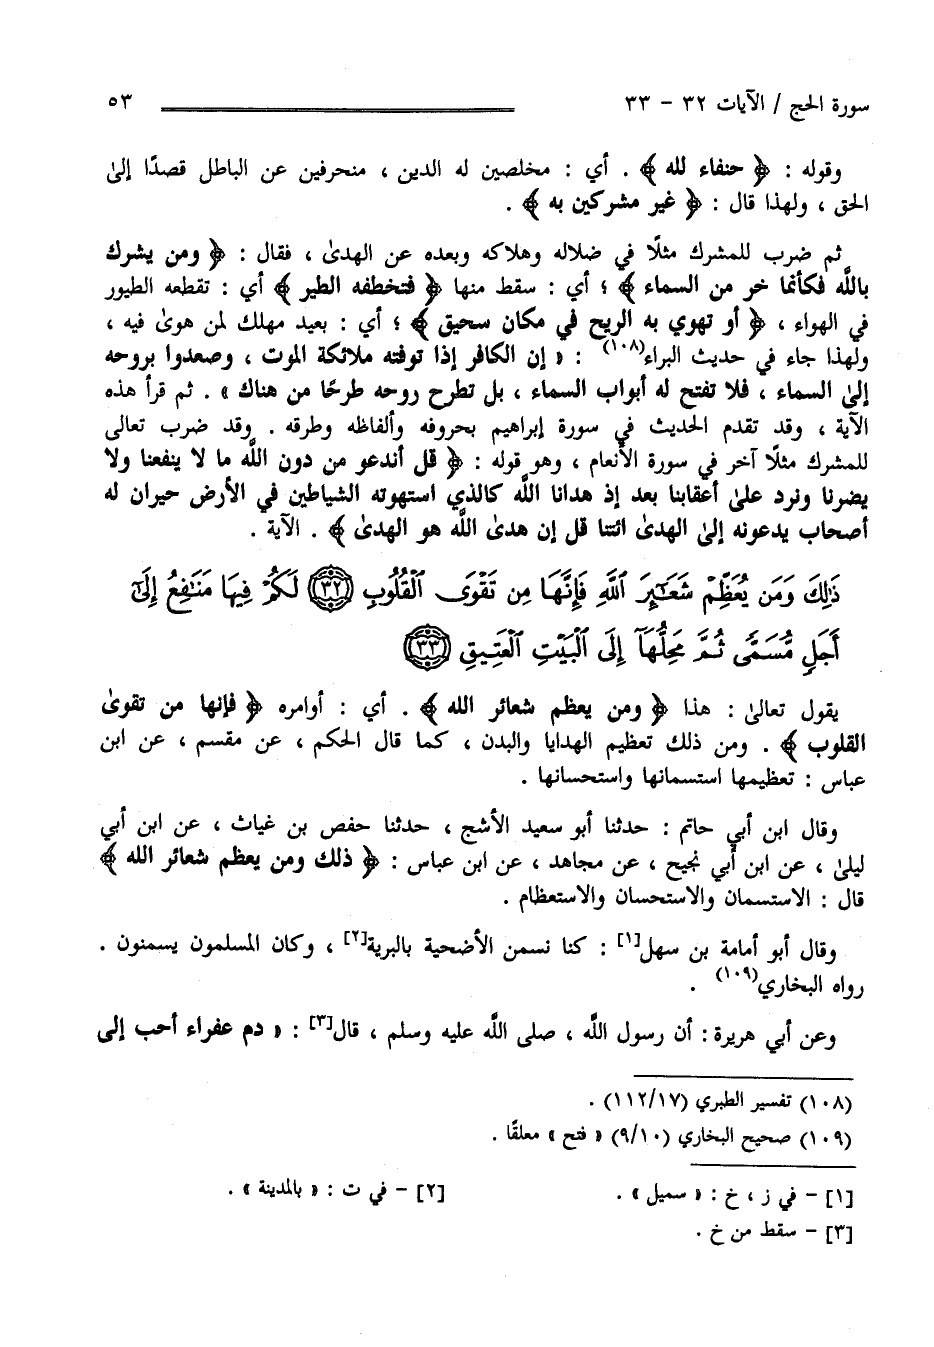 سورة الحج / الآيات ٣٢ - ٣٣ ٥٣
وقوله : ﴿ حنفاء لله ﴾ . أي : مخلصين له الدين ، منحرفين عن الباطل قصدًا إلىٰ
الحق ، ولهذا قال : ﴿ غير مشركين به ﴾ .
ثم ضرب للمشرك مثلًا في ضلاله وهلاكه وبعده عن الهدىٰ ، فقال : ﴿ ومن يشرك
باللَّه فكأنما خر من السماء ﴾ ؛ أي : سقط منها ﴿ فتخطفه الطير ﴾ أي : تقطعه الطيور
في الهواء ، ﴿ أو تهوي به الريح في مكان سحيق ﴾ ؛ أي : بعيد مهلك لمن هوىٰ فيه ،
ولهذا جاء في حديث البراء(١٠٨) : « إن الكافر إذا توفته ملائكة الموت ، وصعدوا بروحه
إلىٰ السماء ، فلا تفتح له أبواب السماء ، بل تطرح روحه طرحًا من هناك » . ثم قرأ هذه
الآية ، وقد تقدم الحديث في سورة إبراهيم بحروفه وألفاظه وطرقه . وقد ضرب تعالى
للمشرك مثلًا آخر في سورة الأنعام ، وهو قوله : ﴿ قل أندعو من دون اللَّه ما لا ينفعنا ولا
يضرنا ونرد علىٰ أعقابنا بعد إذ هدانا اللَّه كالذي استهوته الشياطين في الأرض حيران له
أصحاب يدعونه إلىٰ الهدىٰ ائتنا قل إن هدىٰ اللَّه هو الهدىٰ ﴾ . الآية .
ذَٰلِكَ وَمَن يُعَظِّمْ شَعَـٰٓئِرَ ٱللَّهِ فَإِنَّهَا مِن تَقْوَى ٱلْقُلُوبِ ﴿٣٢﴾ لَكُمْ فِيهَا مَنَـٰفِعُ إِلَىٰٓ
أَجَلٍ مُّسَمًّى ثُمَّ مَحِلُّهَآ إِلَى ٱلْبَيْتِ ٱلْعَتِيقِ ﴿٣٣﴾
يقول تعالىٰ : هذا ﴿ ومن يعظم شعائر الله ﴾ . أي : أوامره ﴿ فإنها من تقوىٰ
القلوب ﴾ . ومن ذلك تعظيم الهدايا والبدن ، كما قال الحكم ، عن مقسم ، عن ابن
عباس : تعظيمها استسمانها واستحسانها .
وقال ابن أبي حاتم : حدثنا أبو سعيد الأشج ، حدثنا حفص بن غياث ، عن ابن أبي
ليلىٰ ، عن ابن أبي نجيح ، عن مجاهد ، عن ابن عباس : ﴿ ذلك ومن يعظم شعائر الله ﴾
قال : الاستسمان والاستحسان والاستعظام .
وقال أبو أمامة بن سهل[١] : كنا نسمن الأضحية بالبرية[٢] ، وكان المسلمون يسمنون .
رواه البخاري(١٠٩) .
وعن أبي هريرة : أن رسول اللَّه ، صلى اللَّه عليه وسلم ، قال[٣] : « دم عفراء أحب إلى
(١٠٨) تفسير الطبري (١١٢/١٧) .
(١٠٩) صحيح البخاري (٩/١٠) « فتح » معلقًا .
[١] - في ز ، خ : « سميل » . [٢] - في ت : « بالمدينة » .
[٣] - سقط من خ .